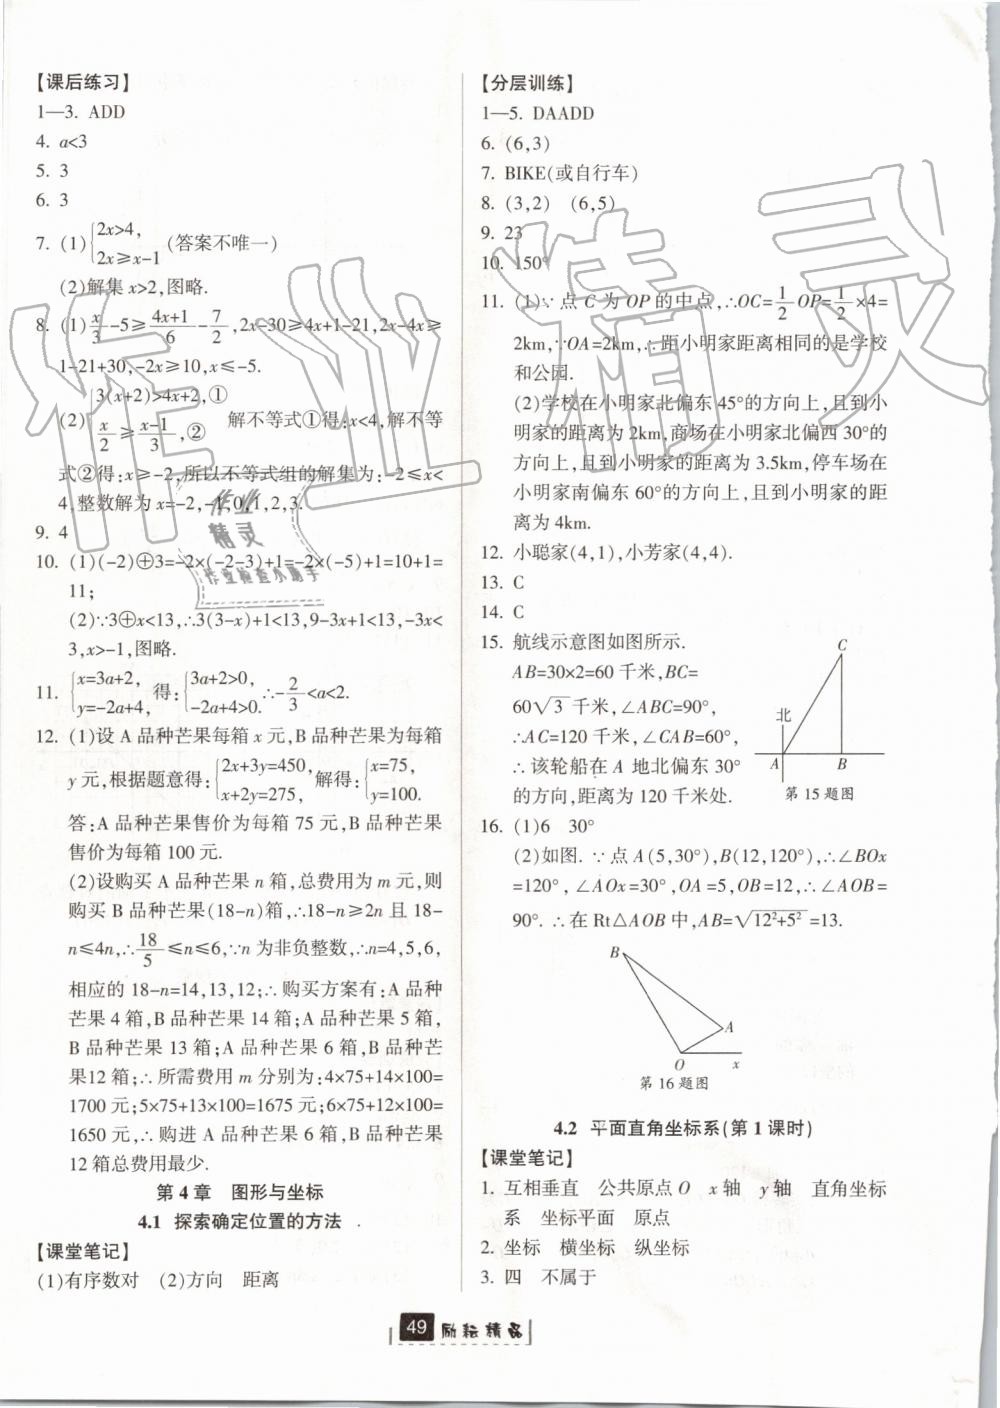 【课后练习】
1—3. ADD
4. a<3
5. 3
6. 3
7. (1){2x>4, 2x≥x-1 (答案不唯一)
(2)解集x>2,图略.
8. (1)x/3-5≥(4x+1)/6-7/2,2x-30≥4x+1-21,2x-4x≥
1-21+30,-2x≥10,x≤-5.
(2){3(x+2)>4x+2,① x/2≥(x-1)/3,② 解不等式①得:x<4,解不等
式②得:x≥-2,所以不等式组的解集为:-2≤x<
4,整数解为x=-2,-1,0,1,2,3.
9. 4
10. (1)(-2)⊕3=-2×(-2-3)+1=-2×(-5)+1=10+1=
11;
(2)∵3⊕x<13,∴3(3-x)+1<13,9-3x+1<13,-3x<
3,x>-1,图略.
11. {x=3a+2, y=-2a+4, 得:{3a+2>0, -2a+4>0. ∴-2/3<a<2.
12. (1)设A品种芒果每箱x元,B品种芒果为每箱
y元,根据题意得:{2x+3y=450, x+2y=275, 解得:{x=75, y=100.
答:A品种芒果售价为每箱75元,B品种芒果
售价为每箱100元.
(2)设购买A品种芒果n箱,总费用为m元,则
购买B品种芒果(18-n)箱,∴18-n≥2n且18-
n≤4n,∴18/5≤n≤6,∵n为非负整数,∴n=4,5,6,
相应的18-n=14,13,12;∴购买方案有:A品种
芒果4箱,B品种芒果14箱;A品种芒果5箱,
B品种芒果13箱;A品种芒果6箱,B品种芒
果12箱;∴所需费用m分别为:4×75+14×100=
1700元;5×75+13×100=1675元;6×75+12×100=
1650元,∴购进A品种芒果6箱,B品种芒果
12箱总费用最少.
第4章 图形与坐标
4.1 探索确定位置的方法
【课堂笔记】
(1)有序数对 (2)方向 距离
【分层训练】
1—5. DAADD
6. (6,3)
7. BIKE(或自行车)
8. (3,2) (6,5)
9. 23
10. 150°
11. (1)∵点C为OP的中点,∴OC=1/2OP=1/2×4=
2km,∵OA=2km,∴距小明家距离相同的是学校
和公园.
(2)学校在小明家北偏东45°的方向上,且到小
明家的距离为2km,商场在小明家北偏西30°的
方向上,且到小明家的距离为3.5km,停车场在
小明家南偏东60°的方向上,且到小明家的距
离为4km.
12. 小聪家(4,1),小芳家(4,4).
13. C
14. C
15. 航线示意图如图所示.
AB=30×2=60千米,BC=
60√3千米,∠ABC=90°,
∴AC=120千米,∠CAB=60°,
∴该轮船在A地北偏东30°
的方向,距离为120千米处.
C
北
A B
第15题图
16. (1)6 30°
(2)如图.∵点A(5,30°),B(12,120°),∴∠BOx
=120°,∠AOx=30°,OA=5,OB=12,∴∠AOB=
90°.∴在Rt△AOB中,AB=√(12²+5²)=13.
B
A
O x
第16题图
4.2 平面直角坐标系(第1课时)
【课堂笔记】
1. 互相垂直 公共原点O x轴 y轴 直角坐标
系 坐标平面 原点
2. 坐标 横坐标 纵坐标
3. 四 不属于
49 励耘精品
作业精灵
作业
精灵
作业检查小助手